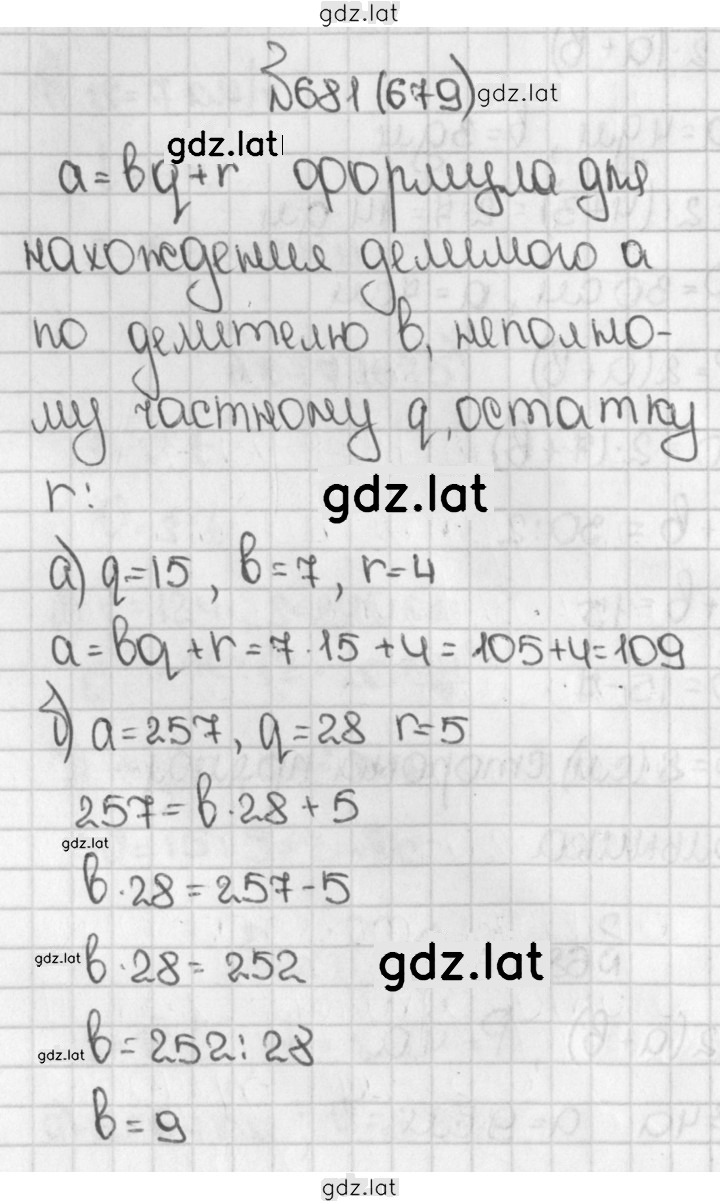 gdz.lat
№681 (679) gdz.lat
gdz.lat
a = bq + r формула для
нахождения делимого a
по делителю b, неполно-
му частному q, остатку
r:
gdz.lat
а) q = 15, b = 7, r = 4
a = bq + r = 7 · 15 + 4 = 105 + 4 = 109
б) a = 257, q = 28 r = 5
257 = b · 28 + 5
gdz.lat
b · 28 = 257 - 5
gdz.lat b · 28 = 252 gdz.lat
gdz.lat b = 252 : 28
b = 9
gdz.lat